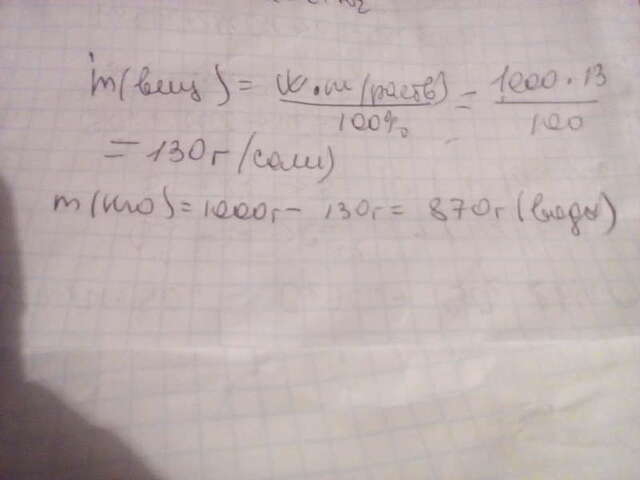 m(вещ) = W·m(раств) / 100% = 1000·13 / 100
= 130г (соли)
m(H2O) = 1000г - 130г = 870г (воды)